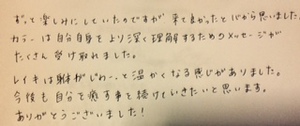 ずっと楽しみにしていたのですが、来て良かったと心から思いました。
カラーは自分自身をより深く理解するためのメッセージが
たくさん受け取れました。
レイキは身体がじわーっと温かくなる感じがありました。
今後も自分を癒す事を続けていきたいと思います。
ありがとうございました!